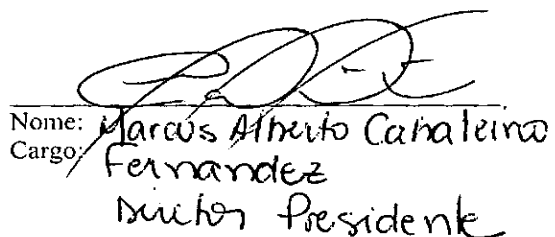 Nome: Marcus Alberto Cabaleiro
Cargo: Fernandez
Diretor Presidente